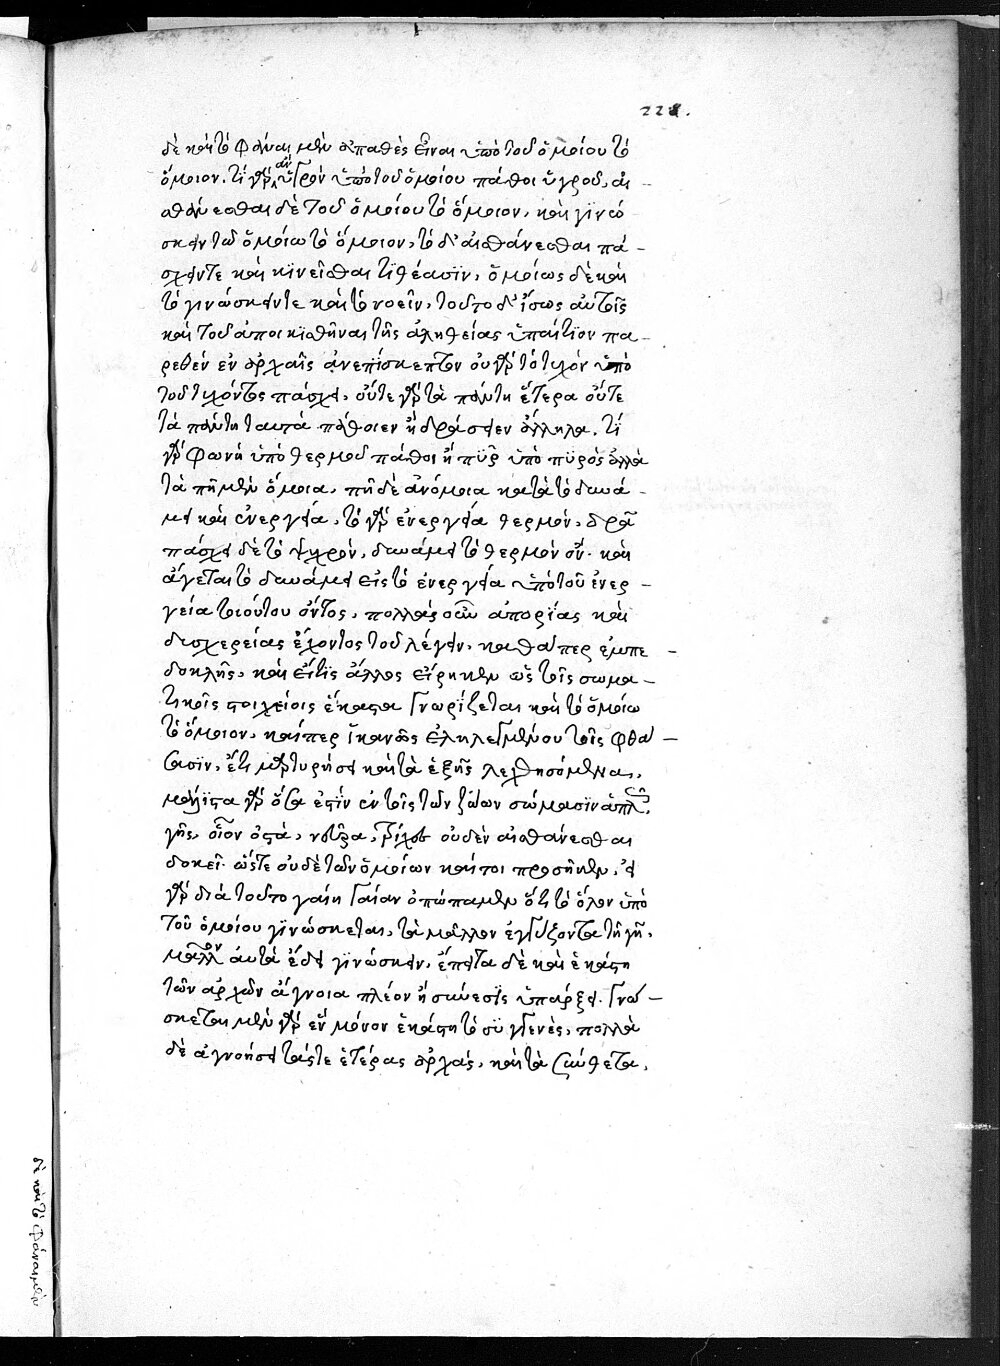 228.
δὲ καὶ τὸ φάναι μὲν ἀπαθὲς εἶναι ὑπὸ τοῦ ὁμοίου τὸ
ὅμοιον. τί γὰρ ἂν ὑγρὸν ὑπὸ τοῦ ὁμοίου πάθοι ὑγροῦ, αἰ -
σθάνεσθαι δὲ τοῦ ὁμοίου τὸ ὅμοιον, καὶ γινώ
σκειν τῶ ὁμοίω τὸ ὅμοιον, τὸ δ' αἰσθάνεσθαι πά -
σχειν τε καὶ κϊνεῖσθαι τϊθέασϊν, ὁμοίως δὲ καὶ
τὸ γινώσκειν τε καὶ τὸ νοεῖν, τοῦτο δ' ἴσως αὐτοῖς
καὶ τοῦ ἀποικϊσθῆναι τῆς ἀληθείας ὑπαίτϊον πα -
ρεθὲν ἐν ἀρχαῖς ἀνεπϊσκεπτον οὐ γὰρ τὸ τυχὸν ὑπὸ
τοῦ τυχόντος πάσχει, οὔτε γὰρ τὰ πάντη ἕτερα οὔτε
τὰ πάντη ταυτὰ πάθοιεν ἢ δράσειεν ἄλληλα. τί
γὰρ φωνὴ ὑπὸ θερμοῦ πάθοι ἢ πῦρ ὑπὸ πυρὸς ἀλλὰ
τὰ πῆ μὲν ὅμοια, πῆ δὲ ἀνόμοια κατὰ τὸ δυνά -
μει καὶ ἐνεργεία, τὸ γὰρ ἐνεργεία θερμὸν, δρᾶ
πάσχει δὲ τὸ ψυχρὸν, δυνάμει τὸ θερμὸν ὂν. καὶ
ἄγεται τὸ δυνάμει εἰς τὸ ἐνεργεία ὑπὸ τοῦ ἐνερ -
γεία τοιούτου ὄντος, πολλὰς οὖν ἀπορίας καὶ
δυσχερείας ἔχοντος τοῦ λέγειν, καθάπερ ἐμπε -
δοκλῆς, καὶ εἴ τϊς ἄλλος εἴρηκεν ὡς τοῖς σωμα -
τικοῖς στοιχείοις ἕκαστα γνωρίζεται καὶ τὸ ὁμοίω
τὸ ὅμοιον, καίπερ ἱκανῶς ἐληλεγμένου τοῖς φθά -
σασϊν, ἔτι μαρτυρήσει καὶ τὰ ἑξῆς λεχθησόμενα,
μάλϊστα γὰρ ὅσα ἐστϊν ἐν τοῖς τῶν ζώων σώμασϊν ἁπλῶς
γῆς, οἷον ὀστᾶ, νεῦρα, τρίχες οὐδὲν αἰσθάνεσθαι
δοκεῖ. ὥστε οὐδὲ τῶν ὁμοίων καίτοι προσῆκεν, εἰ
γὰρ διὰ τοῦτο γαίη γαῖαν ὀπώπαμεν ὅτι τὸ ὅλον ὑπὸ
τοῦ ὁμοίου γϊνώσκεται, τὰ μᾶλλον ἐγγίζοντα τῆ γῆ,
μᾶλλον αὐτὰ ἔδει γϊνώσκειν, ἔπειτα δὲ καὶ ἑκάστη
τῶν ἀρχῶν ἄγνοια πλέον ἢ σύνεσϊς ὑπάρξει. γνώ -
σκεται μὲν γὰρ ἓν μόνον ἑκάστη τὸ συγγενὲς, πολλὰ
δὲ ἀγνοήσει τάς τε ἑτέρας ἀρχὰς, καὶ τὰ σύνθετα,
δὲ καὶ τὸ φάναι μὲν